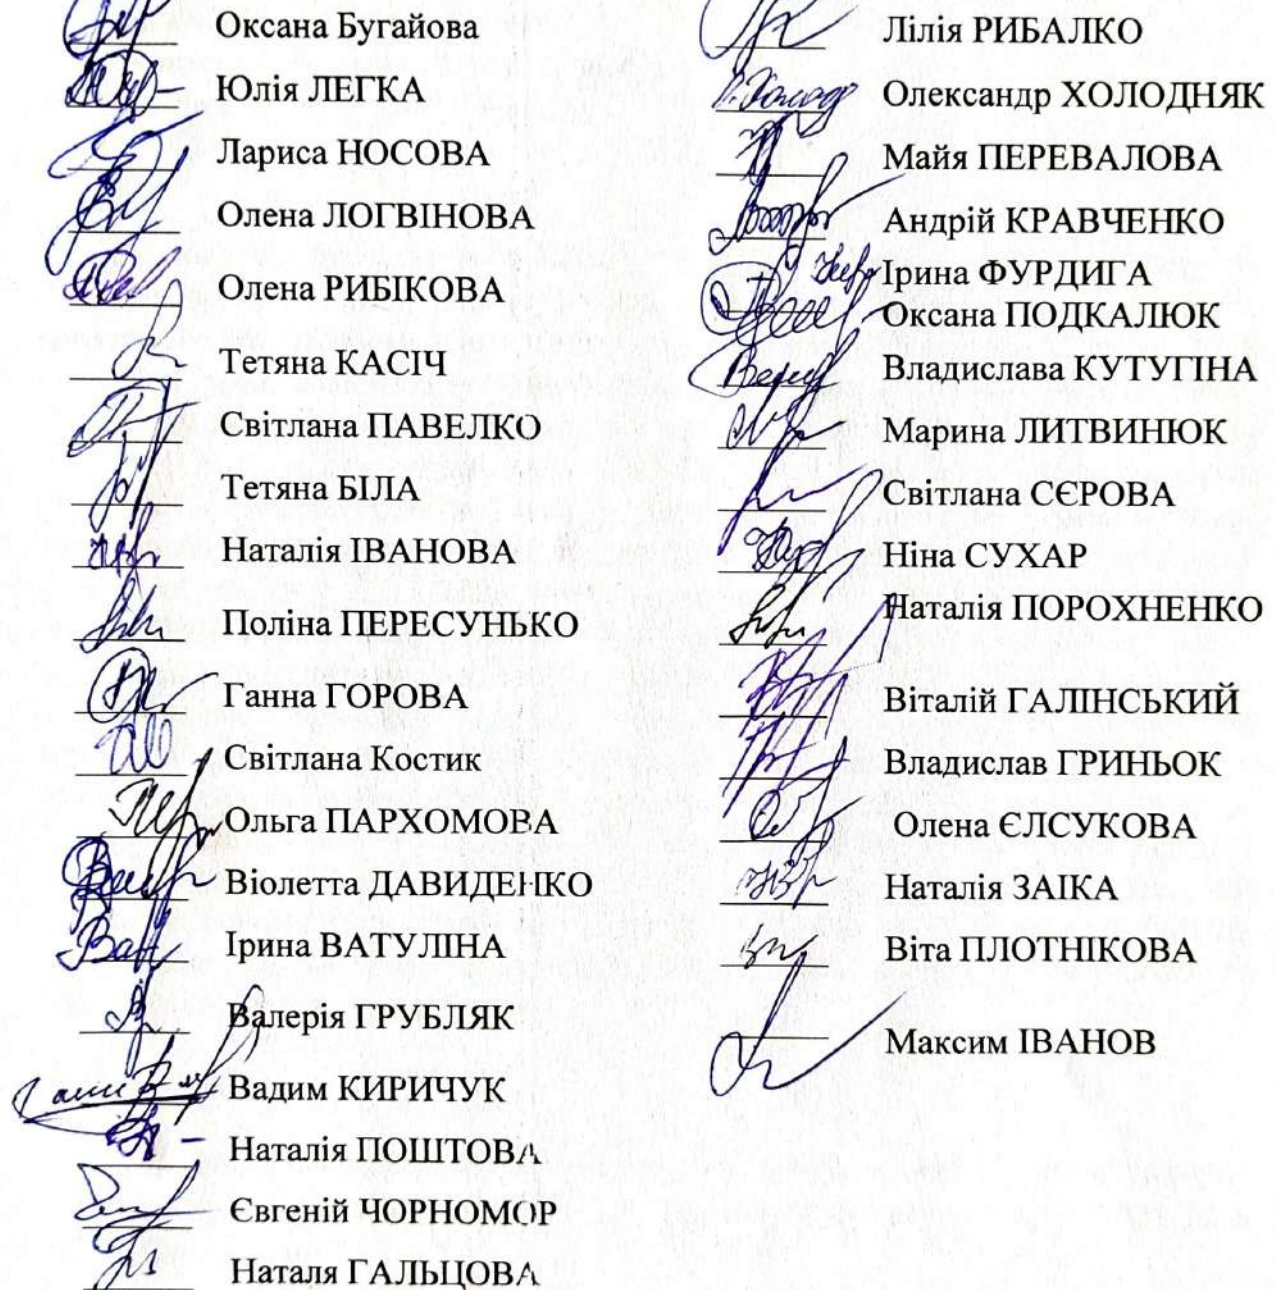 Оксана Бугайова
Юлія ЛЕГКА
Лариса НОСОВА
Олена ЛОГВІНОВА
Олена РИБІКОВА
Тетяна КАСІЧ
Світлана ПАВЕЛКО
Тетяна БІЛА
Наталія ІВАНОВА
Поліна ПЕРЕСУНЬКО
Ганна ГОРОВА
Світлана Костик
Ольга ПАРХОМОВА
Віолетта ДАВИДЕНКО
Ірина ВАТУЛІНА
Валерія ГРУБЛЯК
Вадим КИРИЧУК
Наталія ПОШТОВА
Євгеній ЧОРНОМОР
Наталя ГАЛЬЦОВА
Лілія РИБАЛКО
Олександр ХОЛОДНЯК
Майя ПЕРЕВАЛОВА
Андрій КРАВЧЕНКО
Ірина ФУРДИГА
Оксана ПОДКАЛЮК
Владислава КУТУГІНА
Марина ЛИТВИНЮК
Світлана СЄРОВА
Ніна СУХАР
Наталія ПОРОХНЕНКО
Віталій ГАЛІНСЬКИЙ
Владислав ГРИНЬОК
Олена ЄЛСУКОВА
Наталія ЗАІКА
Віта ПЛОТНІКОВА
Максим ІВАНОВ